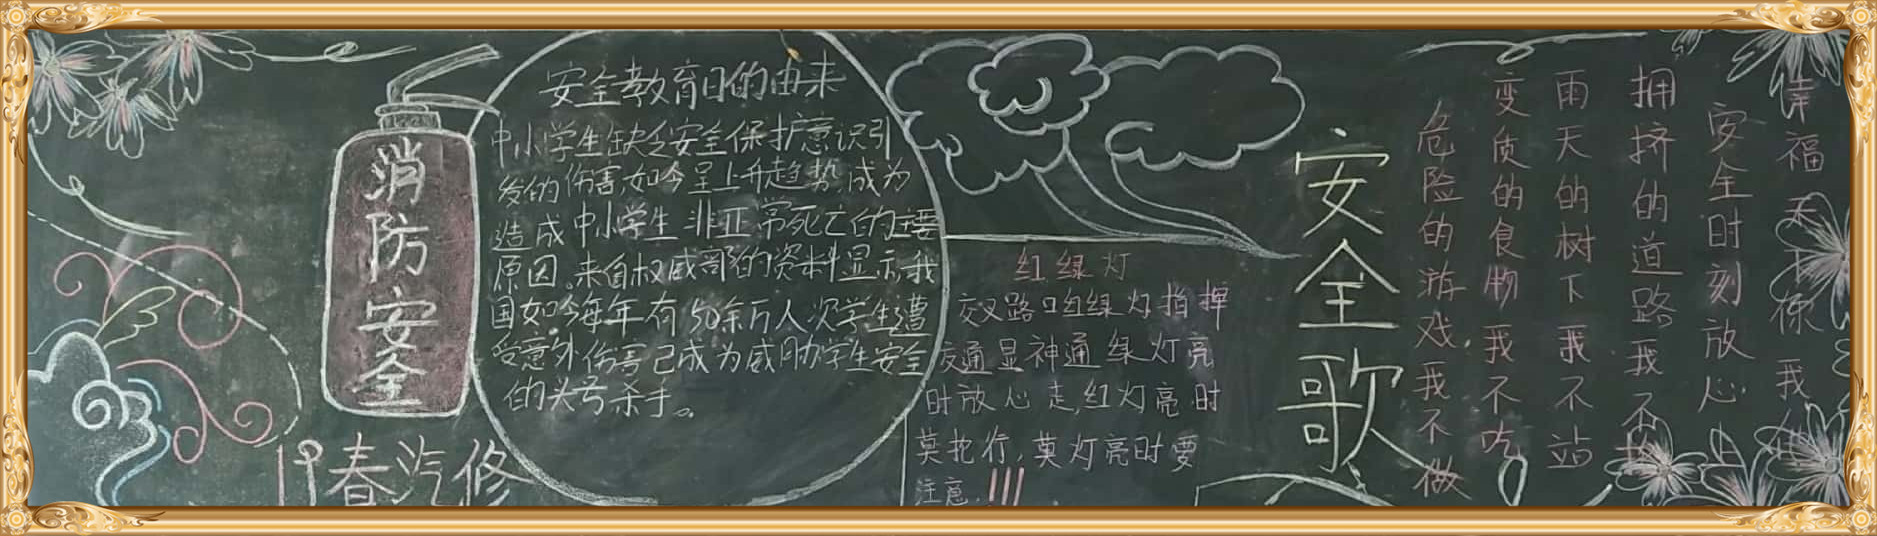 消防安全
19春汽修
安全教育日的由来
中小学生缺乏安全保护意识引
发的伤害,如今呈上升趋势,成为
造成中小学生非正常死亡的主要
原因。来自权威部的资料显示,我
国如今每年有50余万人次学生遭
受意外伤害已成为威胁学生安全
的头号杀手。
红绿灯
交叉路口红绿灯指挥
交通显神通绿灯亮
时放心走,红灯亮时
莫抢行,黄灯亮时要
注意.!!!
安全歌
危险的游戏我不做
变质的食物我不吃
雨天的树下我不站
拥挤的道路我不
安全时刻放心上
幸福